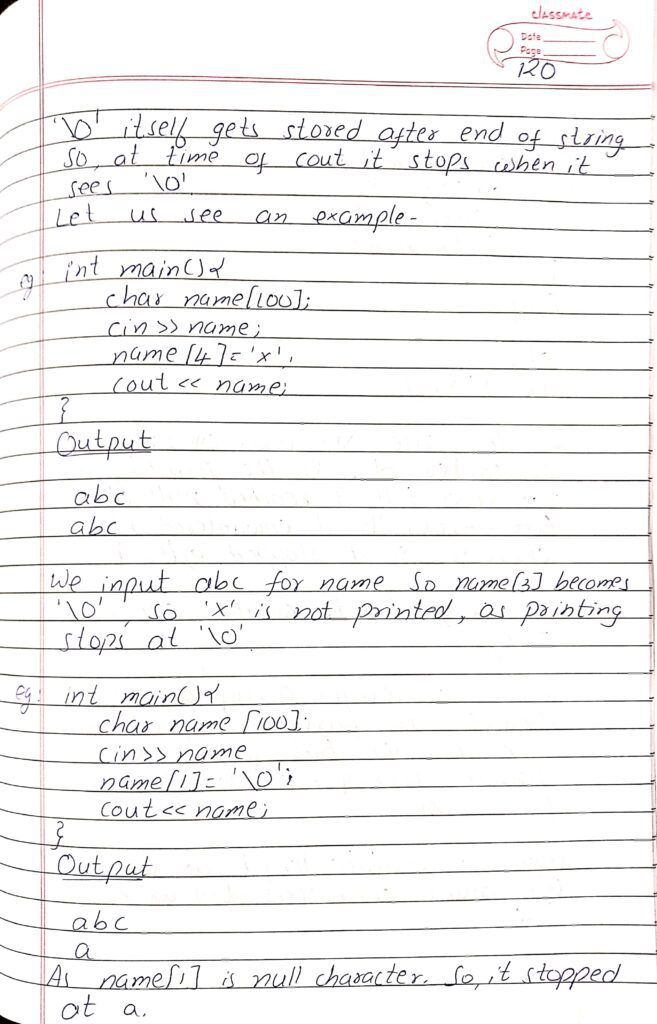 classmate
Date
Page
120
'\0' itself gets stored after end of string
So, at time of cout it stops when it
sees '\0'
Let us see an example-
eg: int main(){
char name[100];
cin >> name;
name[4]='x';
cout << name;
}
Output
abc
abc
We input abc for name So name[3] becomes
'\0' so 'x' is not printed, as printing
stops at '\0'
eg: int main(){
char name [100];
cin>> name
name[1]= '\0';
cout << name;
}
Output
abc
a
As name[1] is null character. So, it stopped
at a.